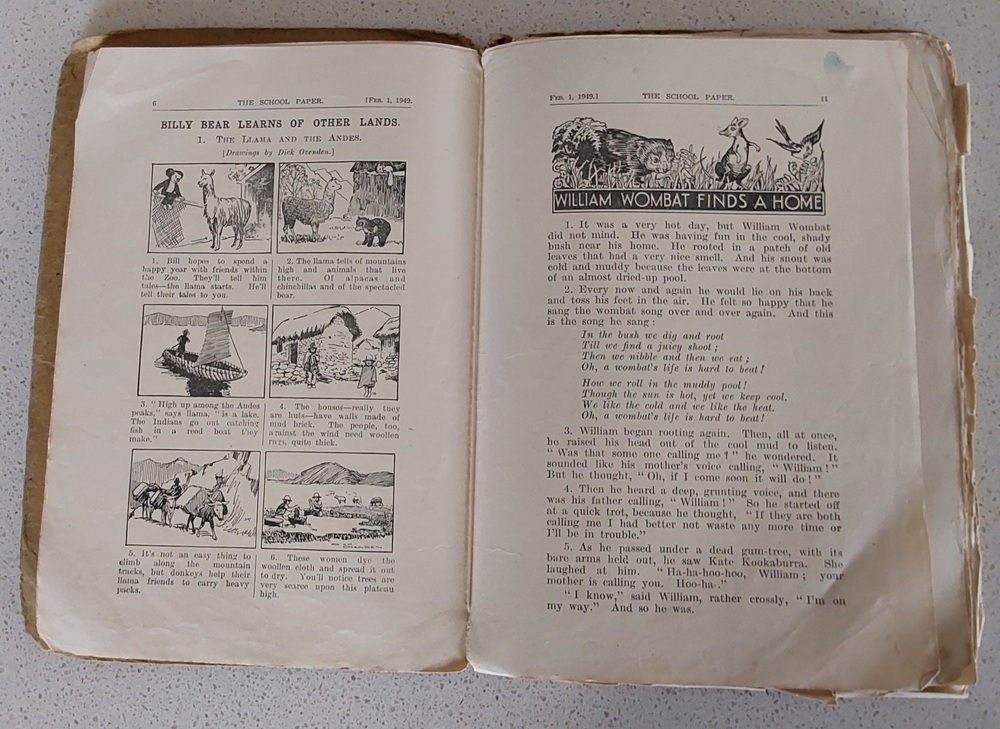 6 THE SCHOOL PAPER. [FEB. 1, 1949.
BILLY BEAR LEARNS OF OTHER LANDS.
1. THE LLAMA AND THE ANDES.
[Drawings by Dick Ovenden.]
1. Bill hopes to spend a
happy year with friends within
the Zoo. They'll tell him
tales—the llama starts. He'll
tell their tales to you.
2. The llama tells of mountains
high and animals that live
there. Of alpacas and
chinchillas and of the spectacled
bear.
3. "High up among the Andes
peaks," says llama, "is a lake.
The Indians go out catching
fish in a reed boat they
make."
4. The houses—really they
are huts—have walls made of
mud brick. The people, too,
against the wind need woollen
rugs, quite thick.
5. It's not an easy thing to
climb along the mountain
tracks, but donkeys help their
llama friends to carry heavy
packs.
6. These women dye the
woollen cloth and spread it out
to dry. You'll notice trees are
very scarce upon this plateau
high.
FEB. 1, 1949.] THE SCHOOL PAPER. 11
WILLIAM WOMBAT FINDS A HOME
1. It was a very hot day, but William Wombat
did not mind. He was having fun in the cool, shady
bush near his home. He rooted in a patch of old
leaves that had a very nice smell. And his snout was
cold and muddy because the leaves were at the bottom
of an almost dried-up pool.
2. Every now and again he would lie on his back
and toss his feet in the air. He felt so happy that he
sang the wombat song over and over again. And this
is the song he sang:
In the bush we dig and root
Till we find a juicy shoot;
Then we nibble and then we eat;
Oh, a wombat's life is hard to beat!
How we roll in the muddy pool!
Though the sun is hot, yet we keep cool.
We like the cold and we like the heat.
Oh, a wombat's life is hard to beat!
3. William began rooting again. Then, all at once,
he raised his head out of the cool mud to listen.
"Was that some one calling me?" he wondered. It
sounded like his mother's voice calling, "William!"
But he thought, "Oh, if I come soon it will do!"
4. Then he heard a deep, grunting voice, and there
was his father calling, "William!" So he started off
at a quick trot, because he thought, "If they are both
calling me I had better not waste any more time or
I'll be in trouble."
5. As he passed under a dead gum-tree, with its
bare arms held out, he saw Kate Kookaburra. She
laughed at him. "Ha-ha-hoo-hoo, William; your
mother is calling you. Hoo-ha."
"I know," said William, rather crossly, "I'm on
my way." And so he was.